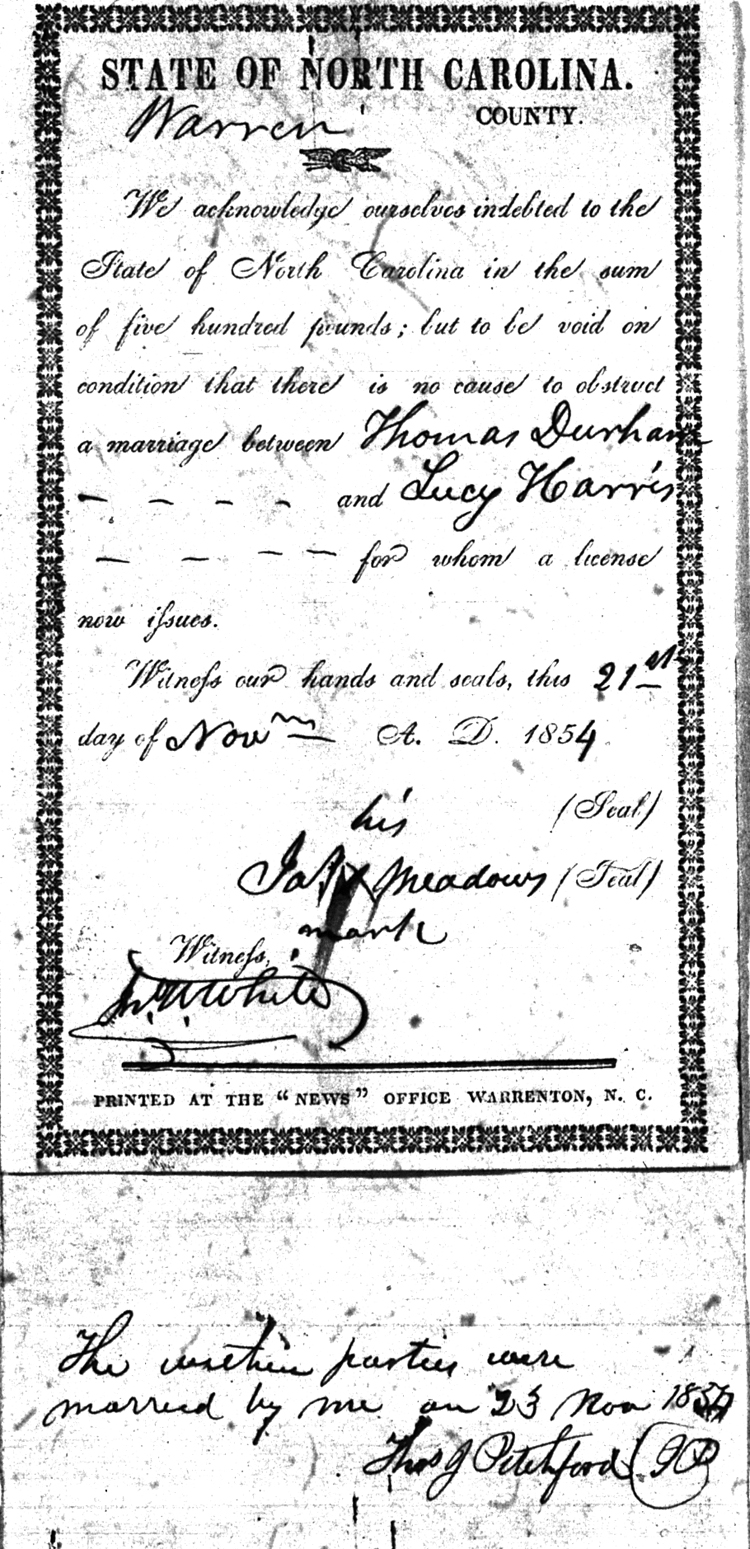 STATE OF NORTH CAROLINA.
Warren COUNTY.
We acknowledge ourselves indebted to the
State of North Carolina in the sum
of five hundred pounds; but to be void on
condition that there is no cause to obstruct
a marriage between Thomas Durham
— — — — and Lucy Harris
— — — — for whom a license
now issues.
Witness our hands and seals, this 21st
day of Novm A. D. 1854
his (Seal)
Jas x Meadows (Seal)
mark
Witness,
White
PRINTED AT THE “NEWS” OFFICE WARRENTON, N. C.
The within parties were
married by me on 23 Nov 1854
Thos J Pitchford JP